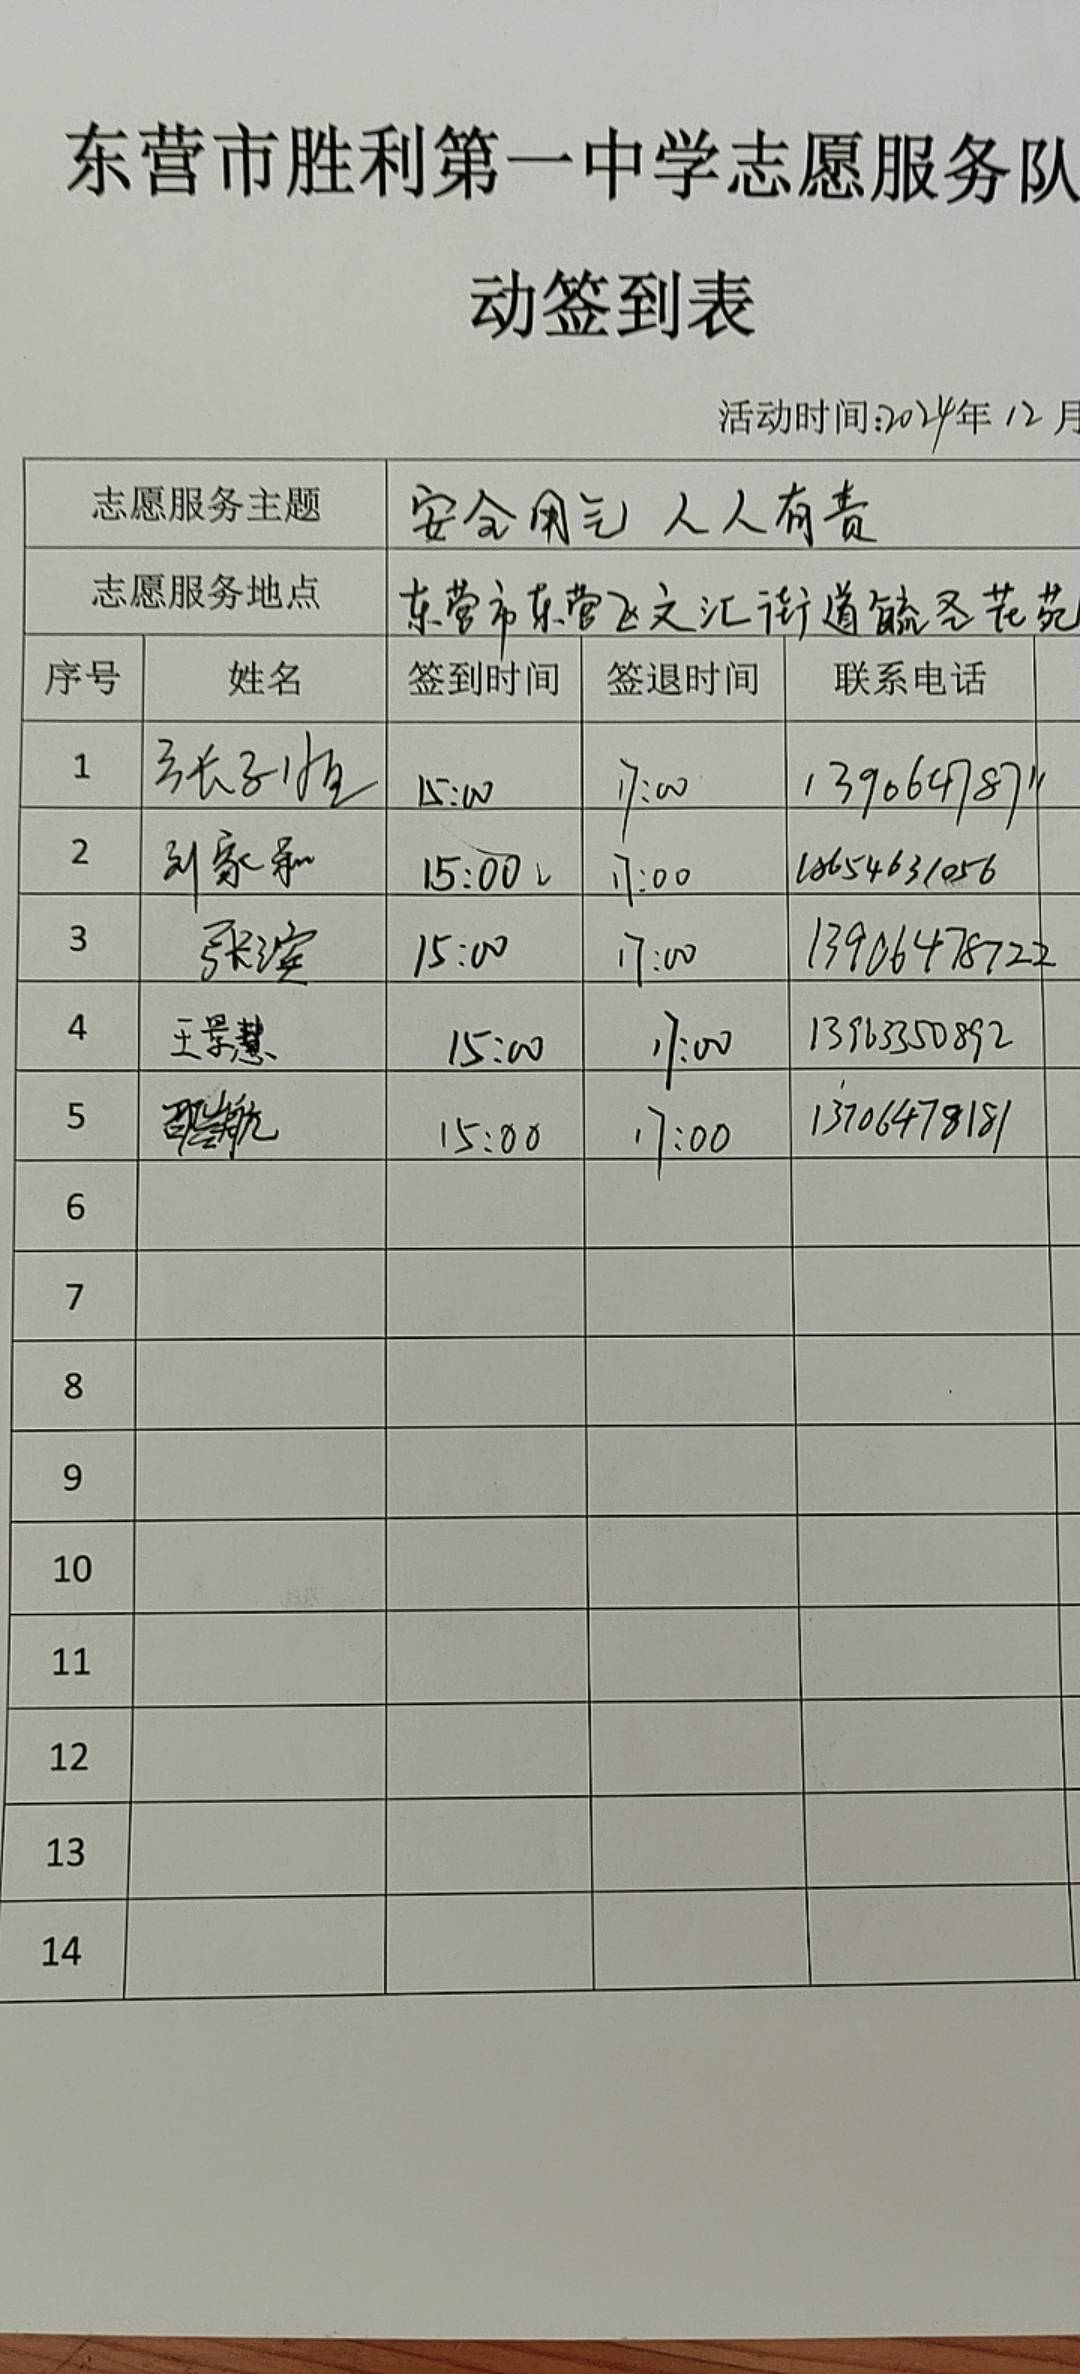 东营市胜利第一中学志愿服务队
动签到表
活动时间:2024年 12 月
志愿服务主题 安全用气 人人有责
志愿服务地点 东营市东营区文汇街道毓秀花苑
序号 姓名 签到时间 签退时间 联系电话
1 张子恒 15:00 17:00
2 刘家和 15:00 17:00 18654631056
3 张滨 15:00 17:00 13906478722
4 王景慧 15:00 17:00 13963350892
5 航 15:00 17:00 13706478181
6
7
8
9
10
11
12
13
14